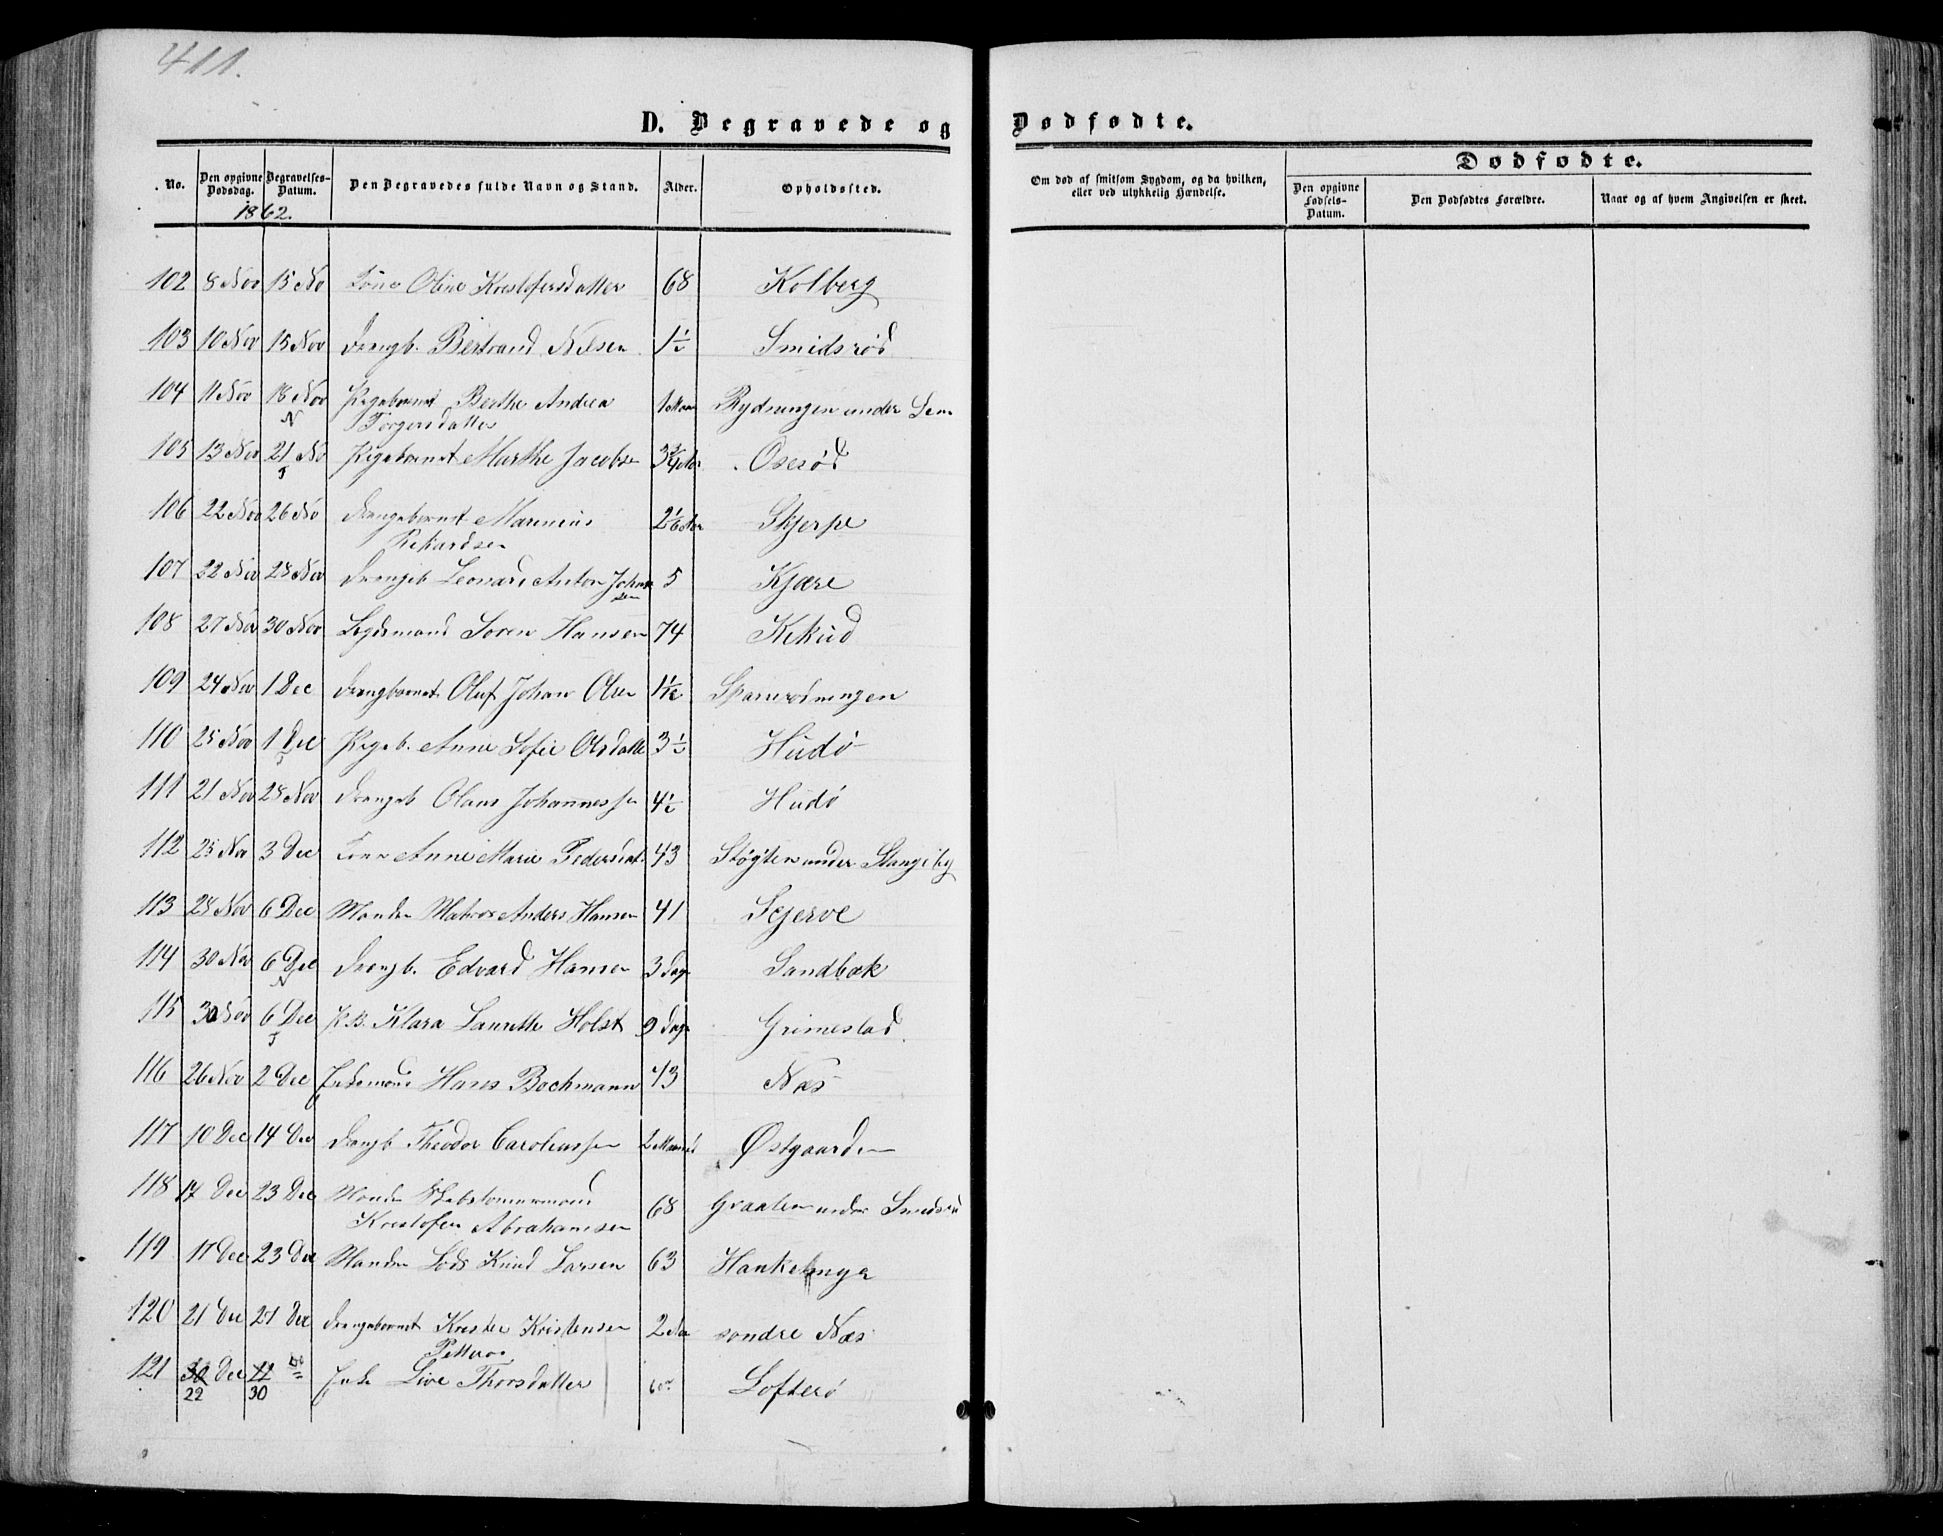 411.
D. Begravede og Dødfødte.
No. Den opgivne Dødsdag. Begravelses-Datum. Den Begravedes fulde Navn og Stand. Alder. Opholdssted. Om død af smitsom Sygdom, og da hvilken, eller ved ulykkelig Hændelse. Dødfødte.
Den opgivne Fødsels-Datum. Den Dødfødtes Forældre. Naar og af hvem Angivelsen er skeet.
1862.
102 8 Nov 15 No Oline Kristofersdatter 68 Kolberg
103 10 Nov 15 Nov Drengb. Bertrand Nilsen 1½ Smidsrød
104 11 Nov 18 Nov Pigebarnet Berthe Andrea 1 Maan Rydningen under Sem
N Torgersdatter
105 13 Nov 21 No Pigebarnet Marthe Jacobs 3¾ Oserød
106 22 Nov 26 No Drengebarnet Marinius 2 Skjerpe
Rikardsen
107 22 Nov 28 Nov Drengeb Leonard Anton Johan 5 Kjære
sen
108 27 Nov 30 Nov Lægdsmand Soren Hansen 74 Kekud
109 24 Nov 1 Dec Drengbarnet Oluf Johan Olsen 1½
110 25 Nov 1 Dec Pigeb. Anne Sofie Olsdatte 3½ Hudø
111 21 Nov 28 Nov Drengeb Olaus Johannessen 4½ Hudø
112 25 Nov 3 Dec Kone Anne Marie Pedersdat 43 Støgten under Stangeby
113 28 Nov 6 Dec Manden Matros Anders Hansen 41 Skjerve
114 30 Nov 6 Dec Drengb. Edvard Hansen 3 Dage Sandbæk
N
115 30 Nov 6 Dec P.B. Klara Laurette Holst 9 Dage Grimestad
116 26 Nov 2 Dec Hans Bochmann 43 Næs
117 10 Dec 14 Dec Drengb Theodor Caroliussen 2 Maaned Østgaarden
118 17 Dec 23 Dec Manden Skibstømmermand 68 Graaten under Smidsrød
Kristofer Abrahamsen
119 17 Dec 23 Dec Manden Lods Knud Larsen 63
120 21 Dec 27 Dec Drengebarnet Kristensen 2 søndre Næs
121 30 Dec 22 Live Thorsdatter 60 Lofterø
22 30